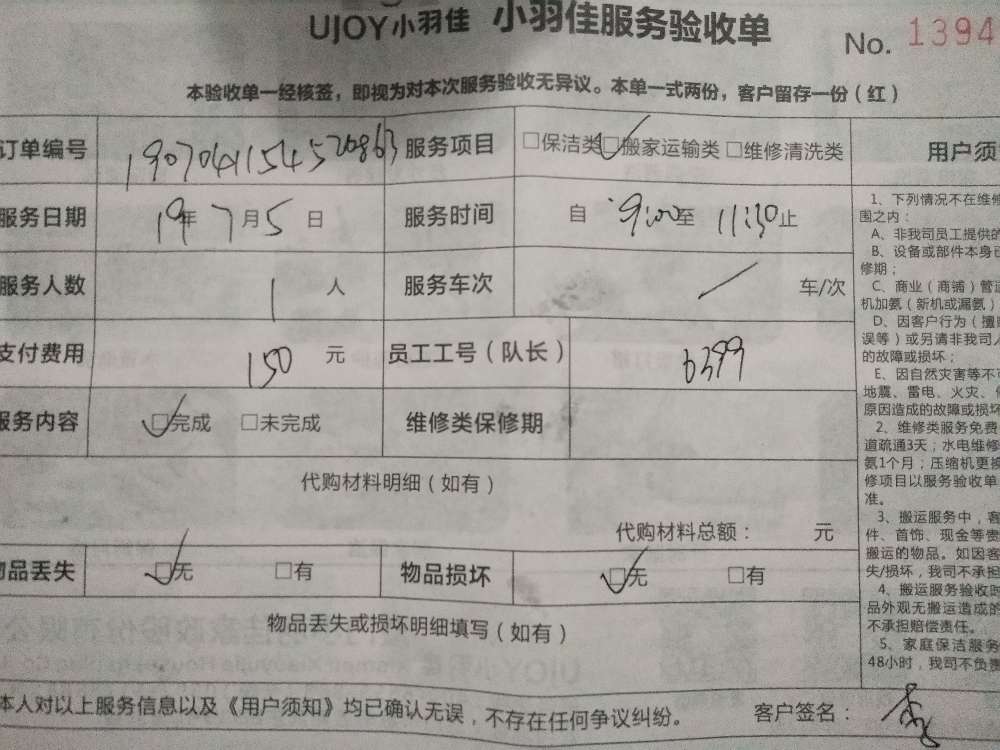 UJOY小羽佳 小羽佳服务验收单 No. 1394
本验收单一经核签，即视为对本次服务验收无异议。本单一式两份，客户留存一份（红）
订单编号 1907041154520863 服务项目 □保洁类 ☑搬家运输类 □维修清洗类
服务日期 19年 7月5日 服务时间 自 9:00至 11:30止
服务人数 1 人 服务车次 / 车/次
支付费用 150 元 员工工号（队长） 6399
服务内容 ☑完成 □未完成 维修类保修期
代购材料明细（如有）
代购材料总额： 元
物品丢失 ☑无 □有 物品损坏 ☑无 □有
物品丢失或损坏明细填写（如有）
本人对以上服务信息以及《用户须知》均已确认无误，不存在任何争议纠纷。 客户签名：
用户须
1、下列情况不在维修
围之内：
A、非我司员工提供的
B、设备或部件本身已
修期；
C、商业（商铺）管运
机加氨（新机或漏氨）
D、因客户行为（擅
误等）或另请非我司人
的故障或损坏；
E、因自然灾害等不可
地震、雷电、火灾、
原因造成的故障或损坏
2、维修类服务免费
道疏通3天；水电维修
氨1个月；压缩机更换
修项目以服务验收单
准。
3、搬运服务中，客
件、首饰、现金等贵
搬运的物品。如因客
失/损坏，我司不承担
4、搬运服务验收时
品外观无搬运造成的
不承担赔偿责任。
5、家庭保洁服务
48小时，我司不负责